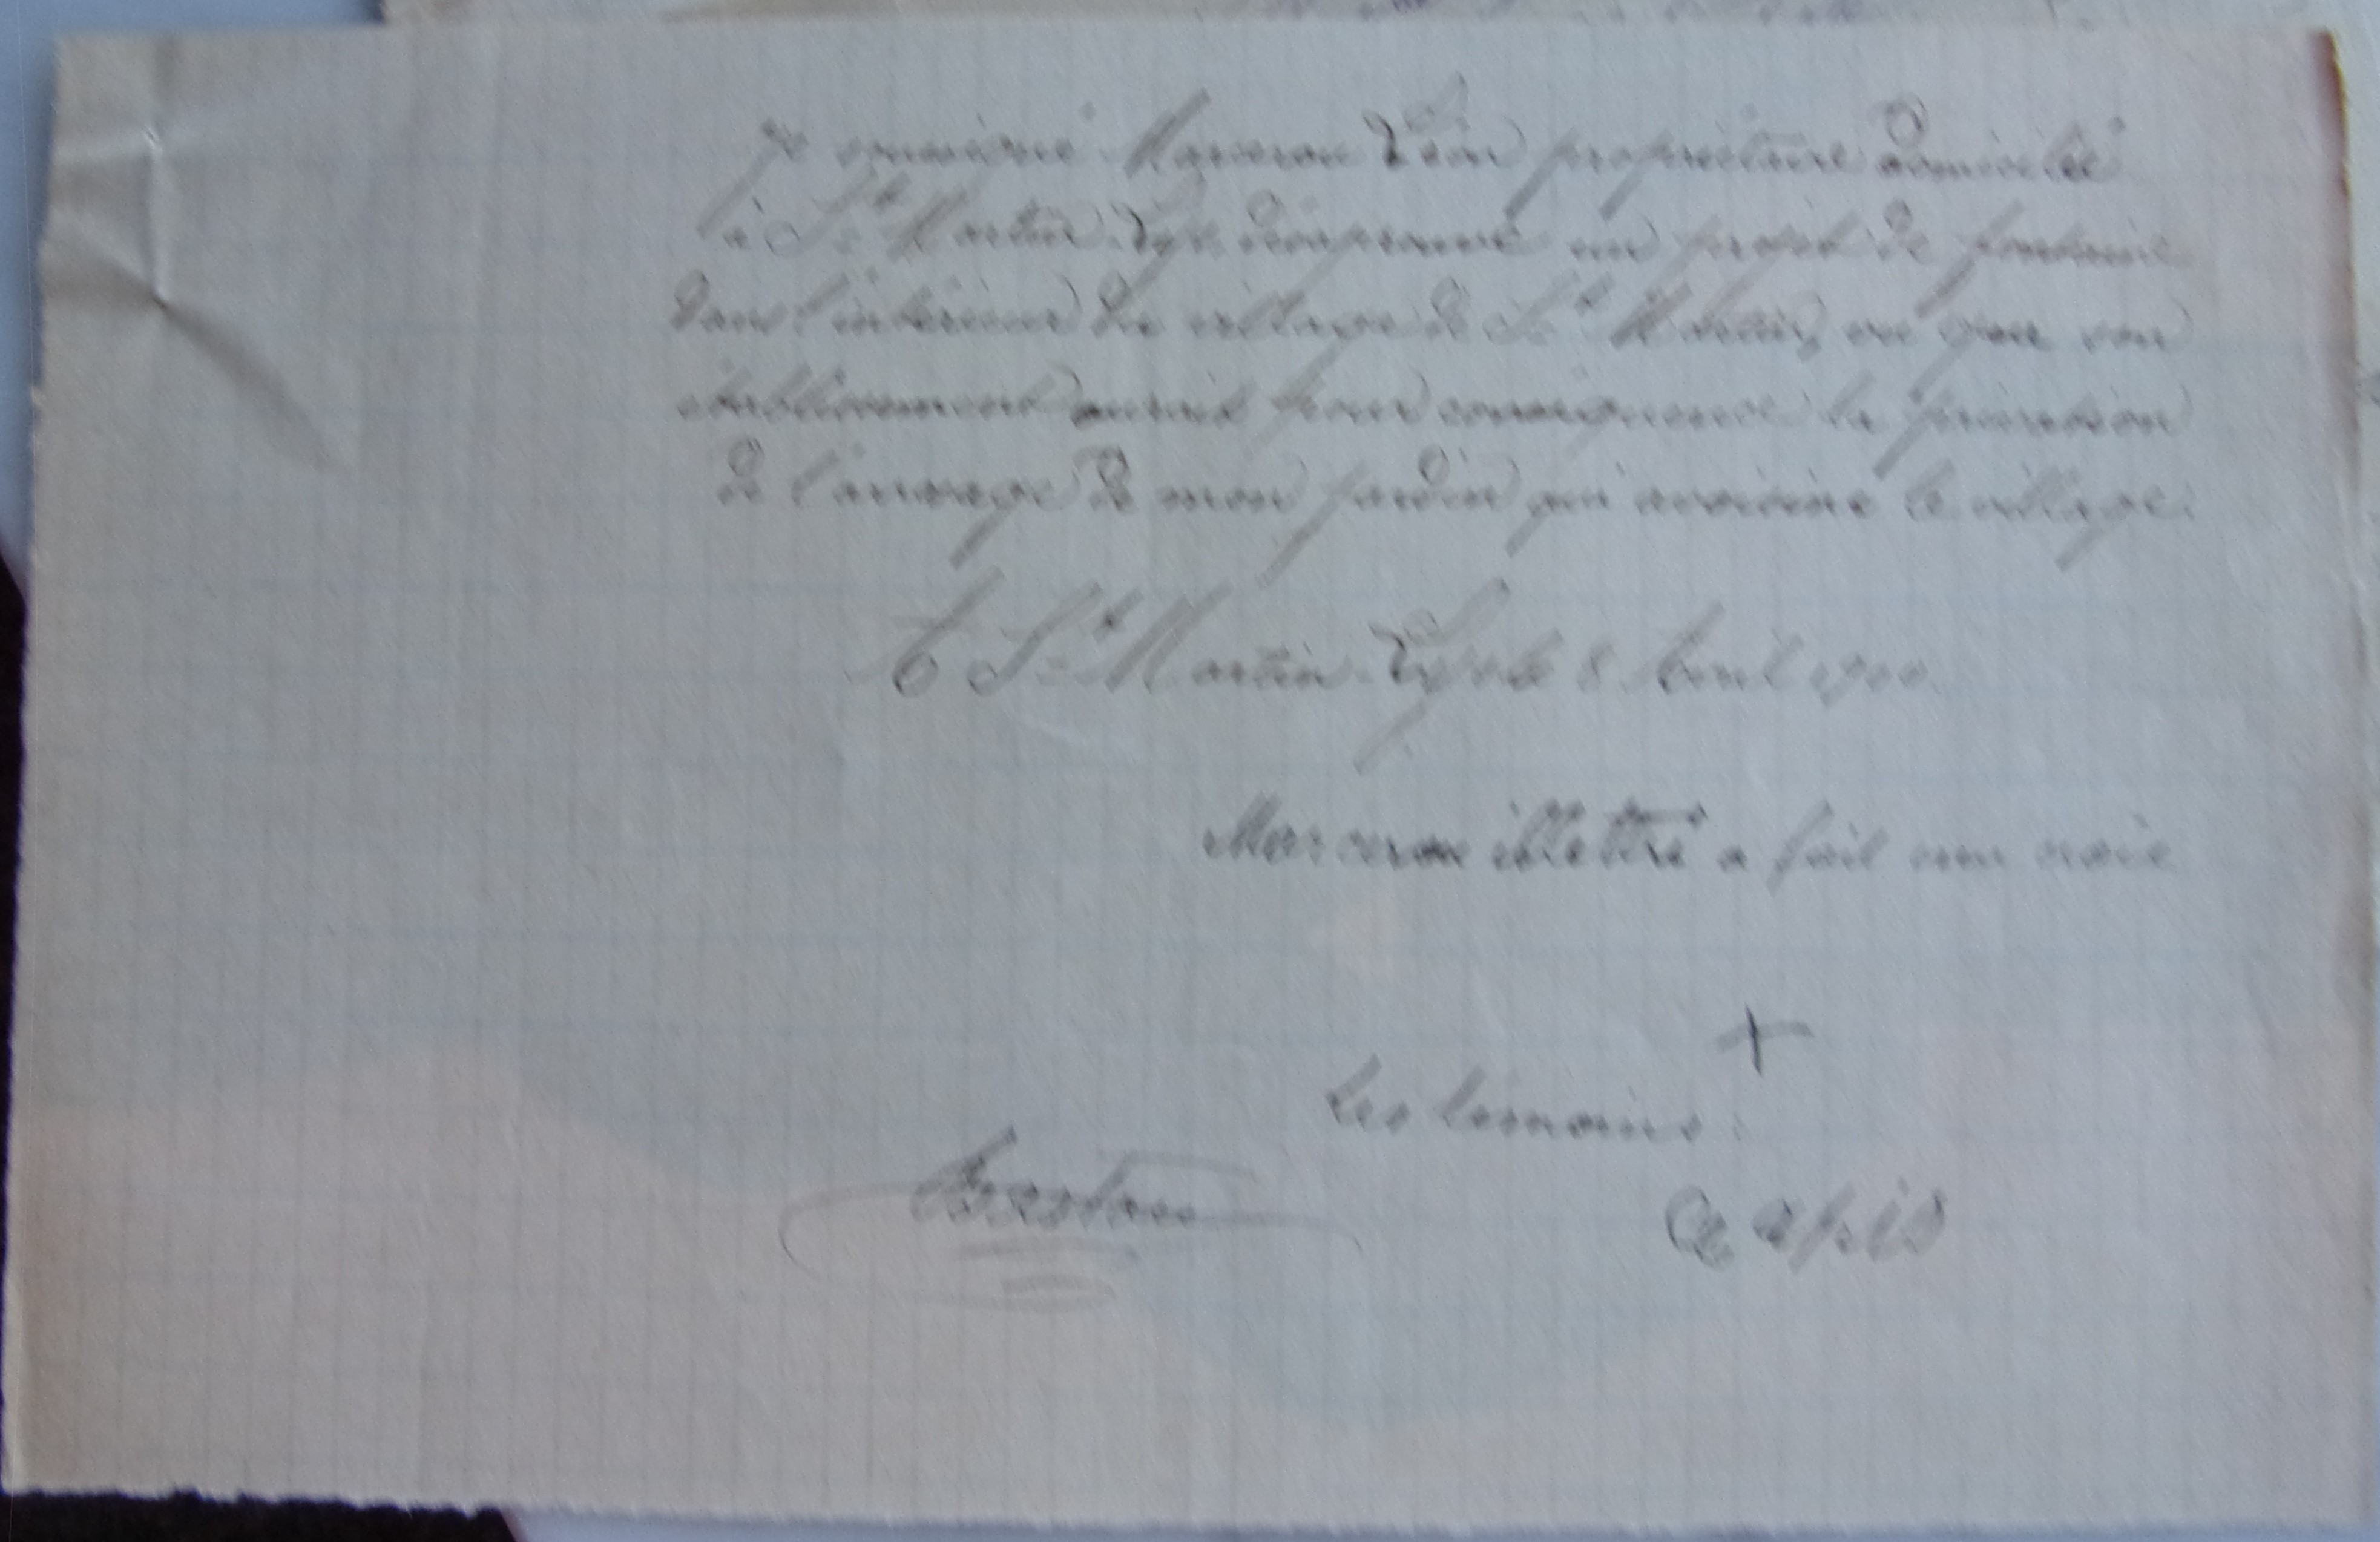 Je soussigné Marceron Léon propriétaire domicilié
à St Martin-Lys, désaprouve un projet de fontaine
dans l'intérieur du village de St Martin, vu que son
établissement aurait pour conséquence la privation
de l'arrosage de mon jardin qui avoisine le village.
A St Martin-Lys le 8 Avril 1900.
Marceron illettré a fait une croix
+
Les témoins :